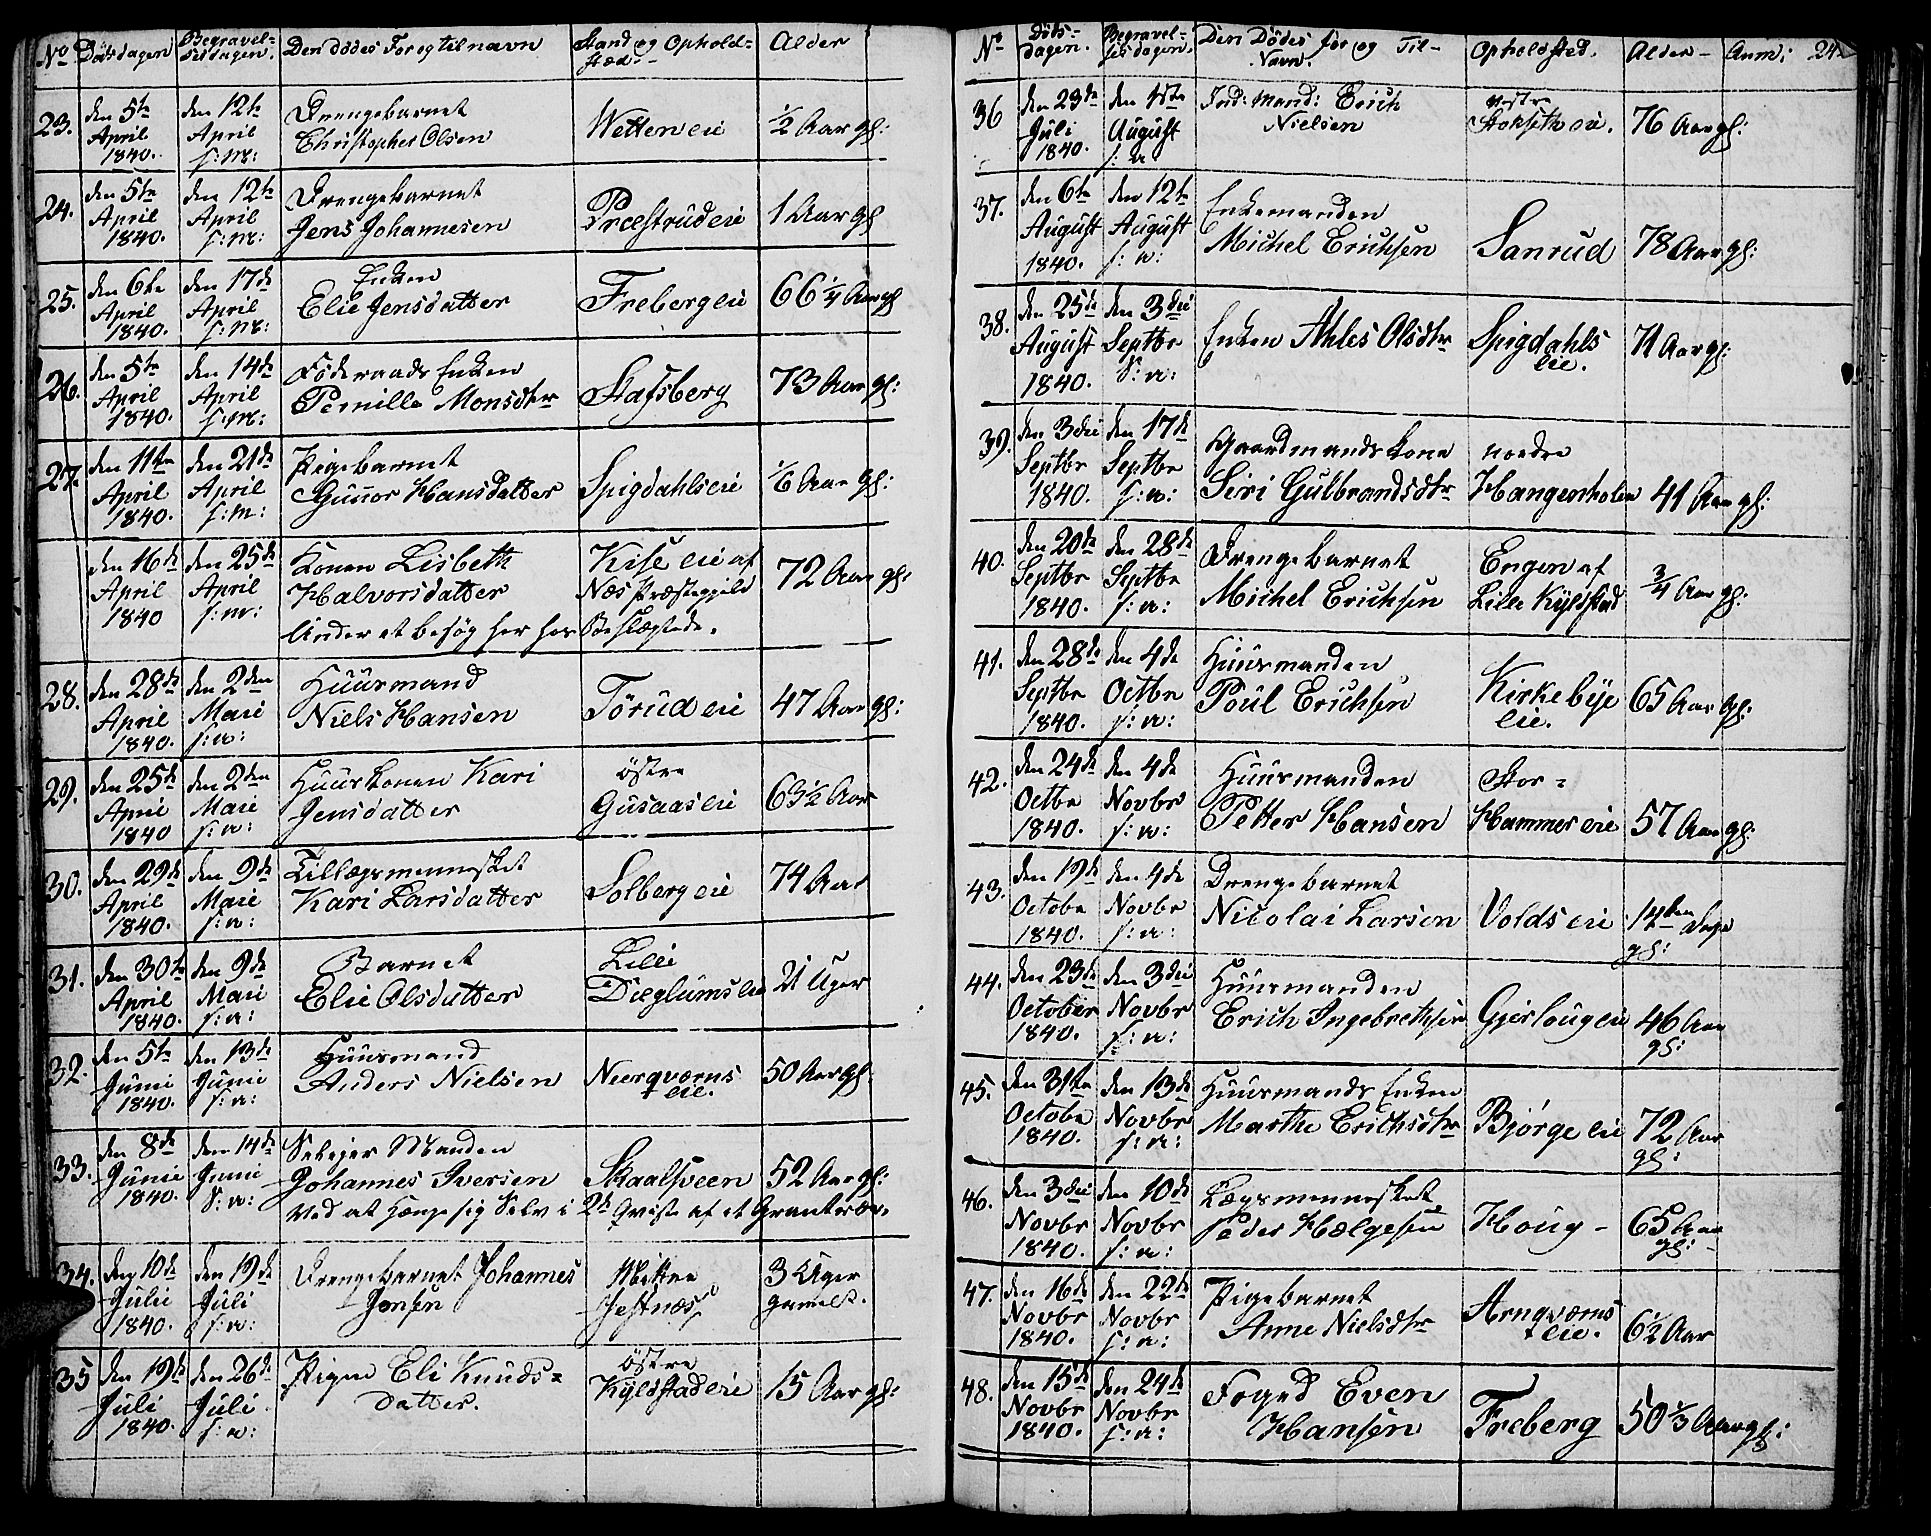 No Dödsdagen Begravel= sesdagen. Den dödes For og tilnavn Stand og Ophold= stæd Alder
23. den 5te April 1840. den 12te April s: M: Drengebarnet Christopher Olsen Wetten eie ½ Aar gl:
24. den 5te April 1840. den 12te April s: M: Drengebarnet Jens Johannesen Præstrud eie 1 Aar gl
25. den 6te April 1840. den 17de April s: M: Enken Elie Jensdatter Freberg eie 66 ¼ Aar gl
26. den 5te April 1840. den 14de April s: M: Föderaads Enken Pernille Monsdtr Stafsberg 73 Aar gl:
27. den 11te April 1840. den 21de April s: M: Pigebarnet Gunnor Hansdatter Spigdahls eie 1/6 Aar gl:
den 16de April 1840 den 25de April s: M: Konen Lisbeth Halvorsdatter Kise eie af Næs Præstegjeld 72 Aar gl:
Under et besög her hos Beslægtede.
28. den 28de April 1840. den 2den Maii s: a: Huusmand Niels Hansen Törud eie 47 Aar gl:
29. den 25de April 1840 den 2den Maii s: a: Huuskonen Kari Jensdatter östre Gusaas eie 63½ Aar
30. den 29de April 1840. den 9de Maii s: a: Tillægsmennesket Kari Larsdatter Solberg eie 74 Aar
31. den 30te April 1840. den 9de Maii s: a: Barnet Elie Olsdatter Lille Dieglums eie 21 Uger
32. den 5te Junii 1840. den 13de Junii s: a: Huusmand Anders Nielsen Neerqværns eie. 50 Aar gl:
33. den 8de Junii 1840. den 14de Junii s: a: Selvejer Manden Johannes Iversen Skaalsveen 52 Aar gl:
Ved at hænge sig Selv i 2de qviste af et Grantræe.
34. den 10de Julii 1840. den 19de Juli s: a: Drengebarnet Johannes Jonsen Mittre Jestnæs 3 Uger gammel.
35 den 19de Juli 1840. den 26de Juli s: a: Pigen Eli Knuds= datter. östre Kylstad eie 15 Aar gl:
No Döds= dagen. Begravel= sesdagen. Den Dödes for og Til- Navn. Opholdsted. Alder- Anm: 24
36 den 23de Juli 1840. den 1ste August s: a Ind: Mand: Erich Nielsen vestre Stokseth eie. 76 Aar gl:
37. den 6te August 1840. den 12te August s: a: Enkemanden Michel Erichsen Sanrud 78 Aar gl:
38. den 25de August 1840. den 3die Septbr S: a: Enken Ahles Olsdtr Spigdahls eie. 71 Aar gl:
39. den 3die Septbr 1840. den 17de Septbr s: a: Gaardmandskone Siri Gulbrandsdtr nordre Hangenholen 41 Aar gl:
40. den 20de Septbr 1840. den 28de Septbr s: a: Drengebarnet Michel Erichsen Engen af Lille Kylstad ¾ Aar gl:
41. den 28de Septbr 1840. den 4de Octbr s: a: Huusmanden Poul Erichsen Kirkebye eie. 65 Aar gl:
42. den 24de Octbr 1840. den 4de Novbr s: a: Huusmanden Petter Hansen Stor= Hammer eie 57 Aar gl:
43. den 19de Octobr 1840. den 4de Novbr s: a: Drengebarnet Nicolai Larsen Volds eie 14ten Dage gl:
44. den 23de October 1840. den 3die Novbr s: a: Huusmanden Erich Ingebrethsen Gjerlougeie 46 Aar gl:
45. den 31te Octobr 1840. den 13de Novbr s: a: Huusmands Enken Marthe Erichsdtr Bjørge eie 72 Aar gl:
46. den 3die Novbr 1840. den 10de Novbr s: a: Lægsmennesket Peder Hælgesen Houg - 65 Aar gl:
47. den 16de Novbr 1840. den 22de Novbr s: a: Pigebarnet Anne Nielsdtr Arnqværns eie. 6½ Aar
48. den 15de Novbr 1840. den 24de Novbr s: a: Foged Even Hansen Freberg 50 ⅓ Aar gl: